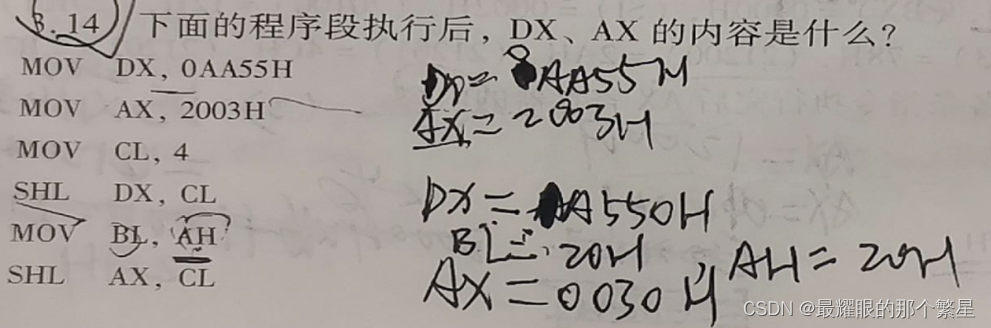 3.14 下面的程序段执行后，DX、AX 的内容是什么？
MOV DX, 0AA55H
MOV AX, 2003H
MOV CL, 4
SHL DX, CL
MOV BL, AH
SHL AX, CL
DX=0AA55H
AX=2003H
DX=A550H
BL=20H, AH=20H
AX=0030H
CSDN @最耀眼的那个繁星